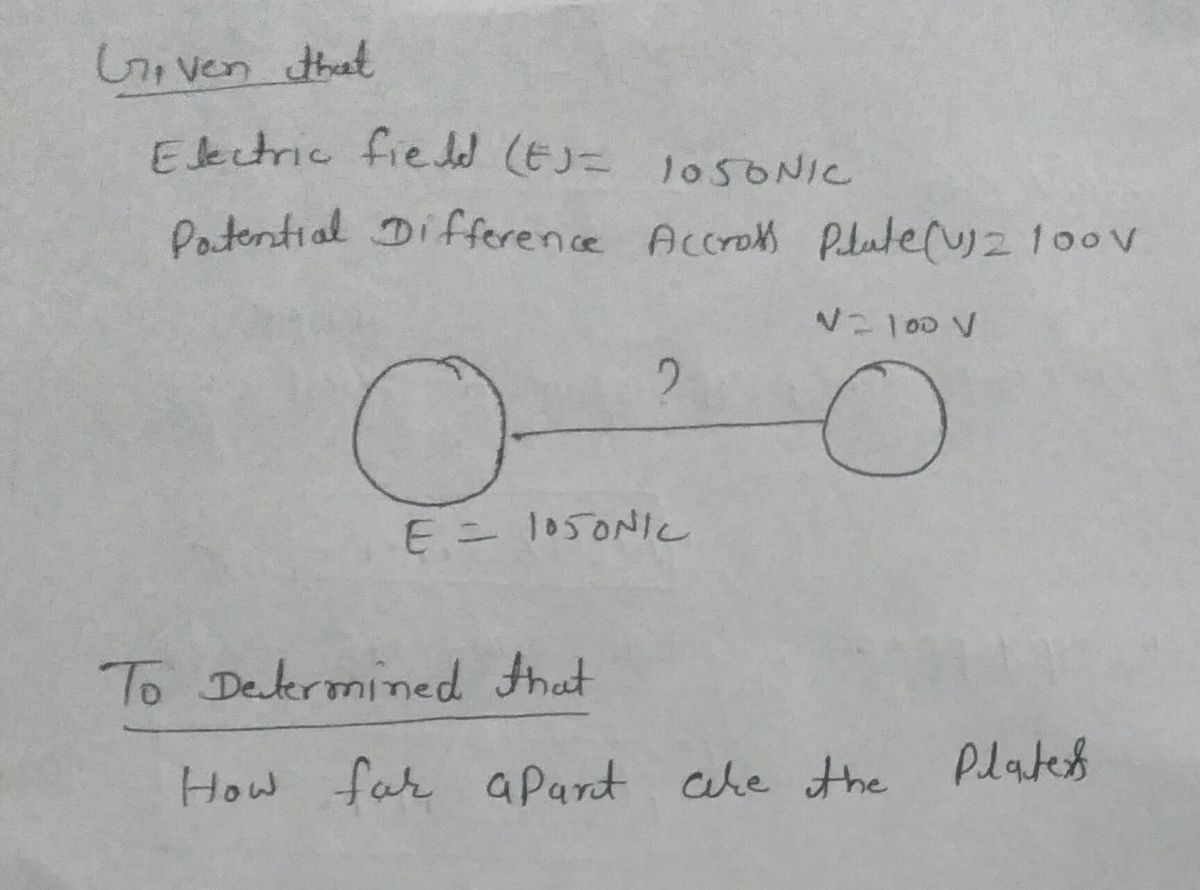 Given that
Electric field (E)= 1050N/C
Potential Difference Accross Plate(V)= 100V
V= 100 V
?
E = 1050N/C
To Determined that
How far apart are the Plates